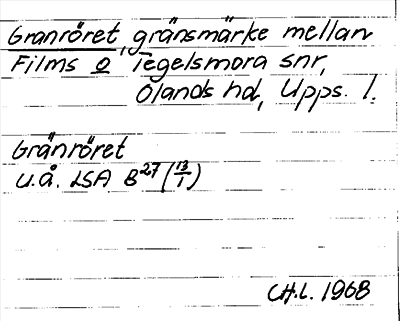 Granröret, gränsmärke mellan
Films o Tegelsmora snr,
Olands hd, Upps. l.
Gränröret
u.å. LSA B27 (13/1)
CH.L. 1968